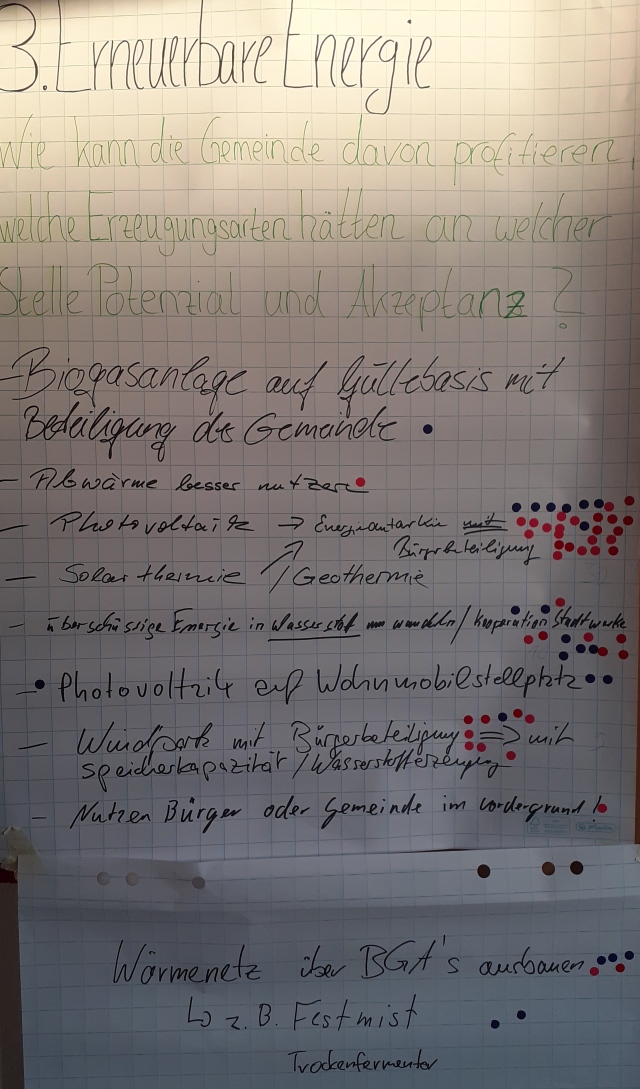 3. Erneuerbare Energie
Wie kann die Gemeinde davon profitieren,
welche Erzeugungsarten hätten an welcher
Stelle Potenzial und Akzeptanz?
- Biogasanlage auf Güllebasis mit
Beteiligung der Gemeinde
- Abwärme besser nutzen
- Photovoltaik → Energieautarkie mit
Bürgerbeteiligung
- Solarthermie / Geothermie
- überschüssige Energie in Wasserstoff umwandeln / Kooperation Stadtwerke
- Photovoltaik auf Wohnmobilstellplatz
- Windpark mit Bürgerbeteiligung ⇒ mit
Speicherkapazität / Wasserstofferzeugung
- Nutzen Bürger oder Gemeinde im Vordergrund!
Wärmenetz über BGA's ausbauen
↳ z.B. Festmist
Trockenfermenter